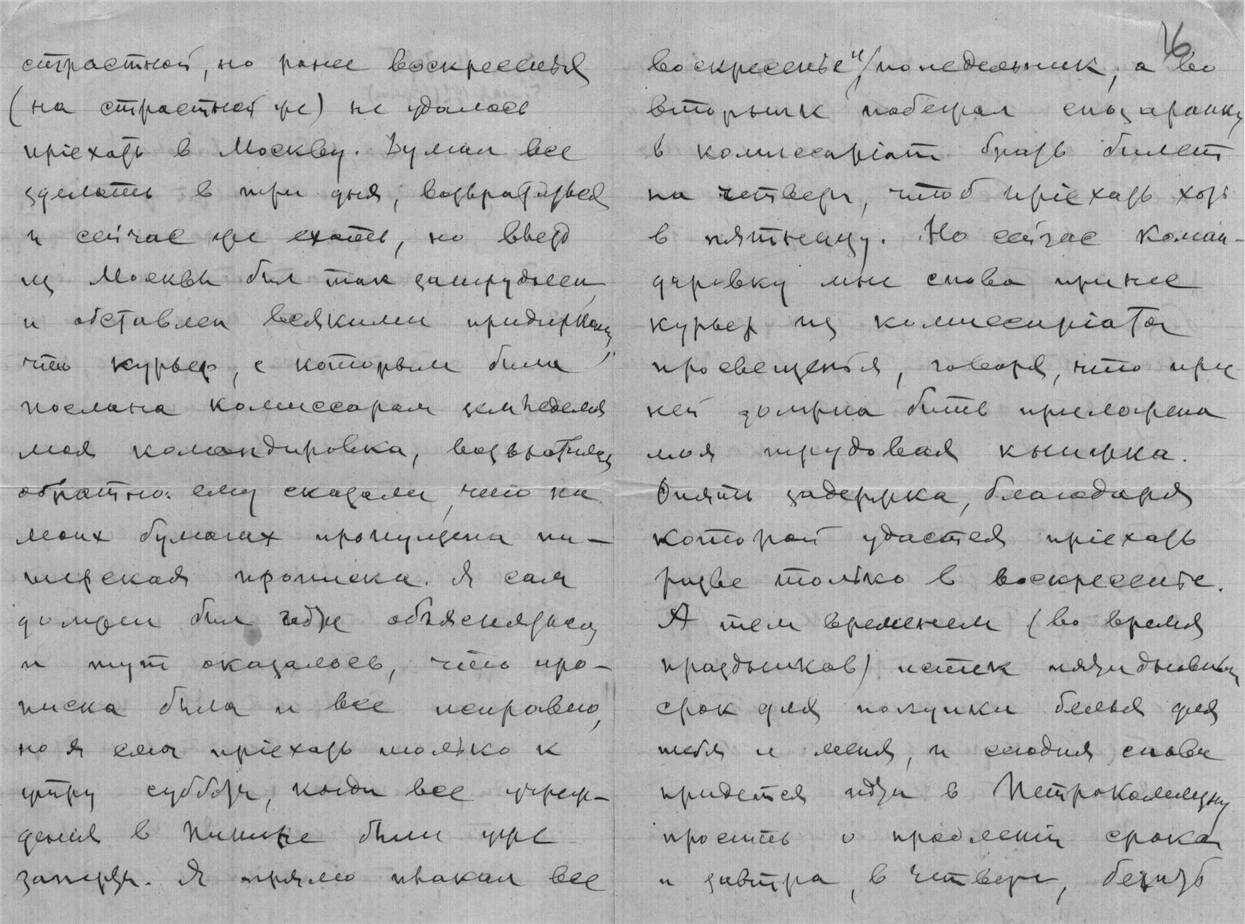 страстной, но ранее воскресенья
(на страстной же) не удалось
пріехать в Москву. Думал все
сделать в три дня, возвратиться
и сейчас же ехать, но въезд
из Москвы был так затруднен
и обставлен всякими придирками,
что курьер, с которым была
послана комиссаром
моя командировка, возвратился
обратно: ему сказали, что на
моих бумагах пропущена пи-
терская прописка. Я сам
должен был объясняться
и тут оказалось, что про-
писка была и все исправно,
но я смог пріехать только к
утру субботы, когда все учреж-
дения в Питере были уже
заперты. Я прямо плакал все
16
воскресенье и/понедельник, а во
вторник побежал спозаранку
в комиссаріат брать билет
на четверг, чтоб пріехать хоть
в пятницу. Но сейчас коман-
дировку мне снова принес
курьер из комиссаріата
просвещенья, говоря, что при
ней должна быть приложена
моя трудовая книжка.
Опять задержка, благодаря
которой удастся пріехать
разве только в воскресенье.
А тем временем (во время
праздников) истек пятидневный
срок для покупки белья для
тебя и меня, и сегодня снова
придется идти в Петрокоммуну
просить о продлении срока
и завтра, в четверг, бежать